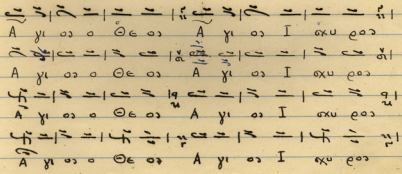 Α γι ος ο Θε ος Α γι ος Ι σχυ ρος
Α γι ος ο Θε ος Α γι ος Ι σχυ ρος
Α γι ος ο Θε ος Α γι ος Ι σχυ ρος
Α γι ος ο Θε ος Α γι ος Ι σχυ ρος